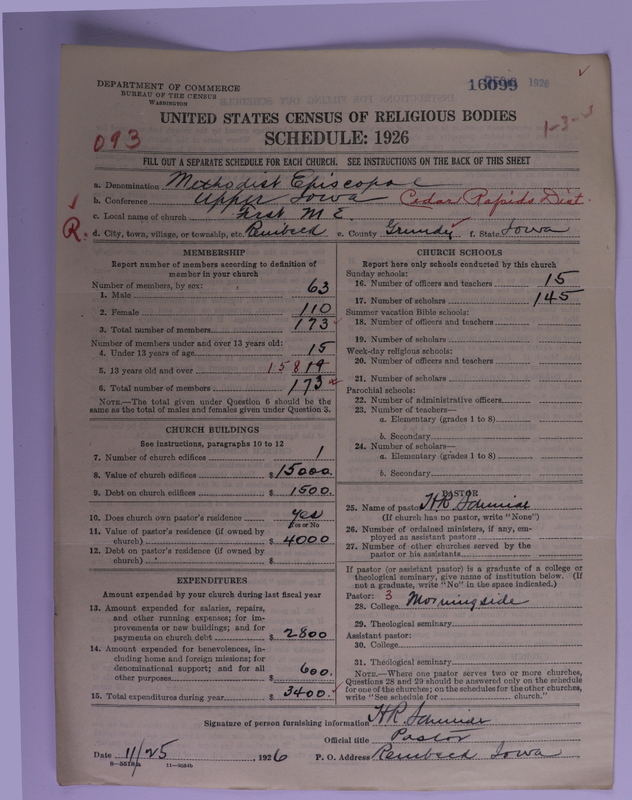 DEPARTMENT OF COMMERCE
BUREAU OF THE CENSUS
WASHINGTON
16099 1926
UNITED STATES CENSUS OF RELIGIOUS BODIES
093
SCHEDULE: 1926
1-3-
FILL OUT A SEPARATE SCHEDULE FOR EACH CHURCH. SEE INSTRUCTIONS ON THE BACK OF THIS SHEET
a. Denomination Methodist Episcopal
b. Conference Upper Iowa Cedar Rapids Dist.
c. Local name of church First M E.
R. d. City, town, village, or township, etc. Reinbeck e. County Grundy f. State Iowa
MEMBERSHIP
Report number of members according to definition of
member in your church
Number of members, by sex:
1. Male 63
2. Female 110
3. Total number of members 173
Number of members under and over 13 years old:
4. Under 13 years of age 15
5. 13 years old and over 158
6. Total number of members 173
NOTE.—The total given under Question 6 should be the
same as the total of males and females given under Question 3.
CHURCH BUILDINGS
See instructions, paragraphs 10 to 12
7. Number of church edifices 1
8. Value of church edifices $15000.
9. Debt on church edifices $1500.
10. Does church own pastor's residence yes
Yes or No
11. Value of pastor's residence (if owned by
church) $4000
12. Debt on pastor's residence (if owned by
church) $
EXPENDITURES
Amount expended by your church during last fiscal year
13. Amount expended for salaries, repairs,
and other running expenses; for im-
provements or new buildings; and for
payments on church debt $2800
14. Amount expended for benevolences, in-
cluding home and foreign missions; for
denominational support; and for all
other purposes $600.
15. Total expenditures during year $3400.
CHURCH SCHOOLS
Report here only schools conducted by this church
Sunday schools:
16. Number of officers and teachers 15
17. Number of scholars 145
Summer vacation Bible schools:
18. Number of officers and teachers
19. Number of scholars
Week-day religious schools:
20. Number of officers and teachers
21. Number of scholars
Parochial schools:
22. Number of administrative officers
23. Number of teachers—
a. Elementary (grades 1 to 8)
b. Secondary
24. Number of scholars—
a. Elementary (grades 1 to 8)
b. Secondary
PASTOR
25. Name of pastor H R
(If church has no pastor, write "None")
26. Number of ordained ministers, if any, em-
ployed as assistant pastors
27. Number of other churches served by the
pastor or his assistants
If pastor (or assistant pastor) is a graduate of a college or
theological seminary, give name of institution below. (If
not a graduate, write "No" in the space indicated.)
Pastor: 3
28. College Morningside
29. Theological seminary
Assistant pastor:
30. College
31. Theological seminary
NOTE.—Where one pastor serves two or more churches,
Questions 28 and 29 should be answered only on the schedule
for one of the churches; on the schedules for the other churches,
write "See schedule for church."
Signature of person furnishing information H R
Official title Pastor
Date 11/25, 1926 P. O. Address Reinbeck Iowa